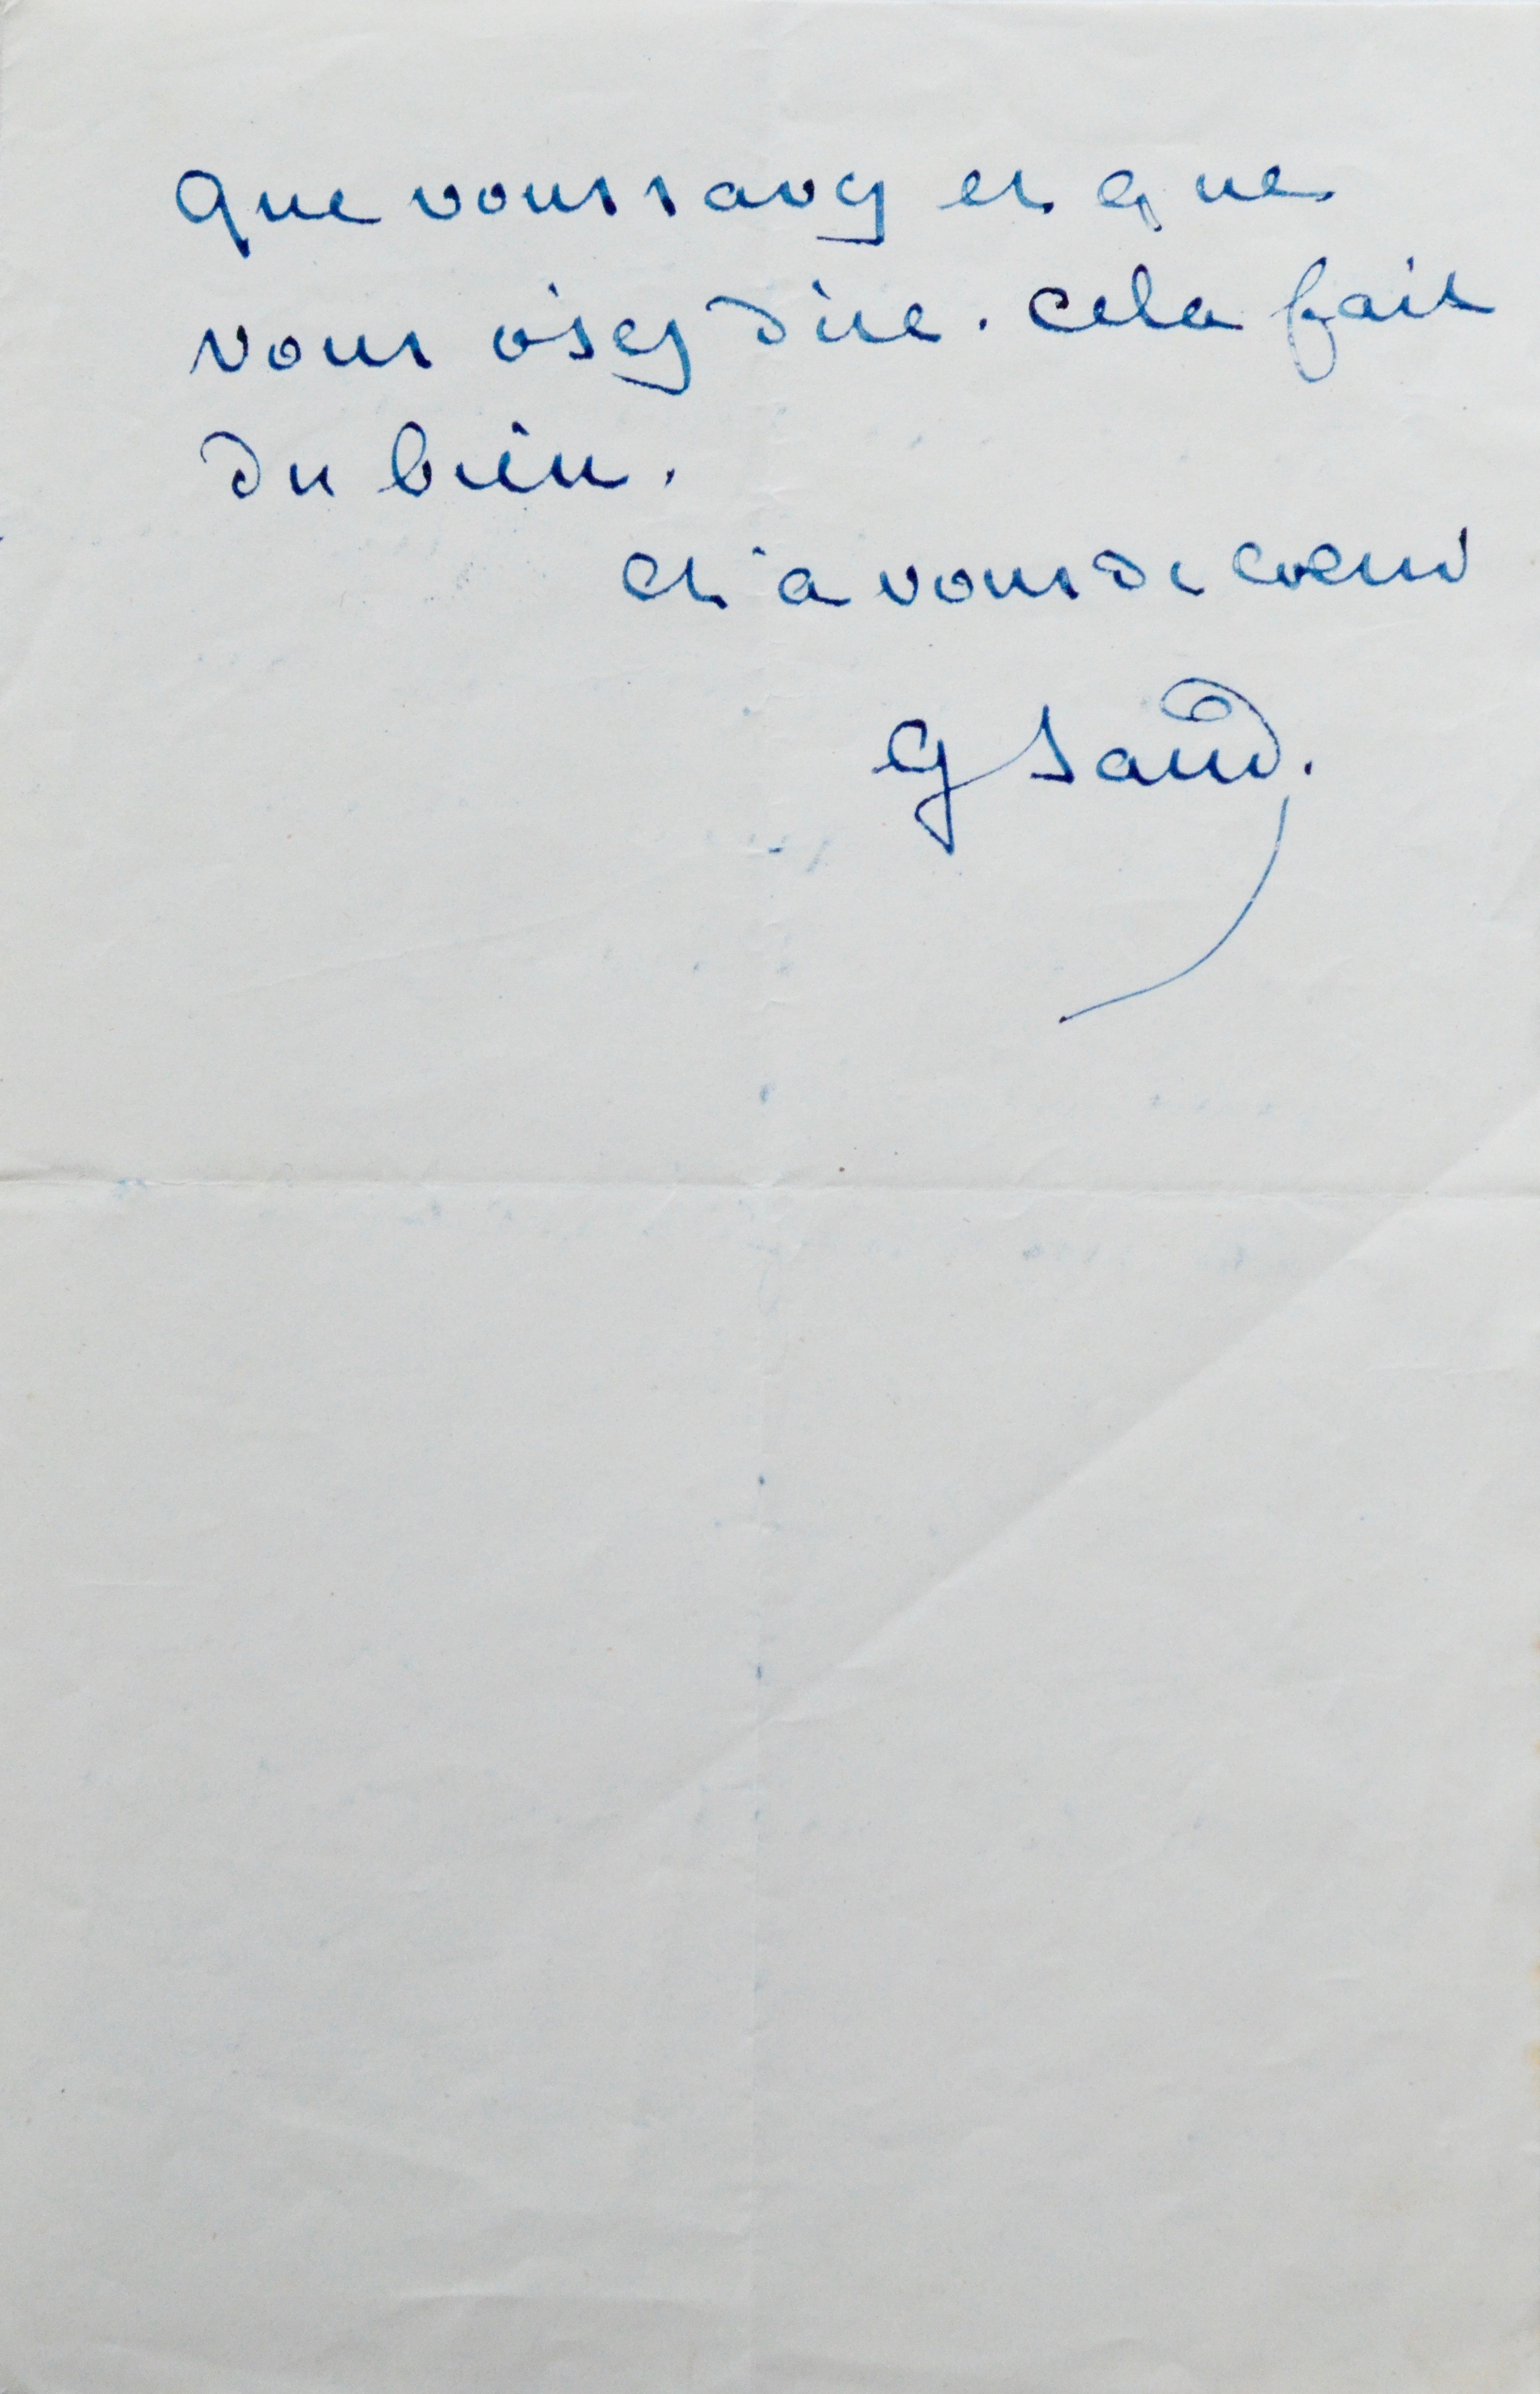 que vous savez et que
vous osez dire. cela fait
du bien.
et à vous de cœur
G Sand.